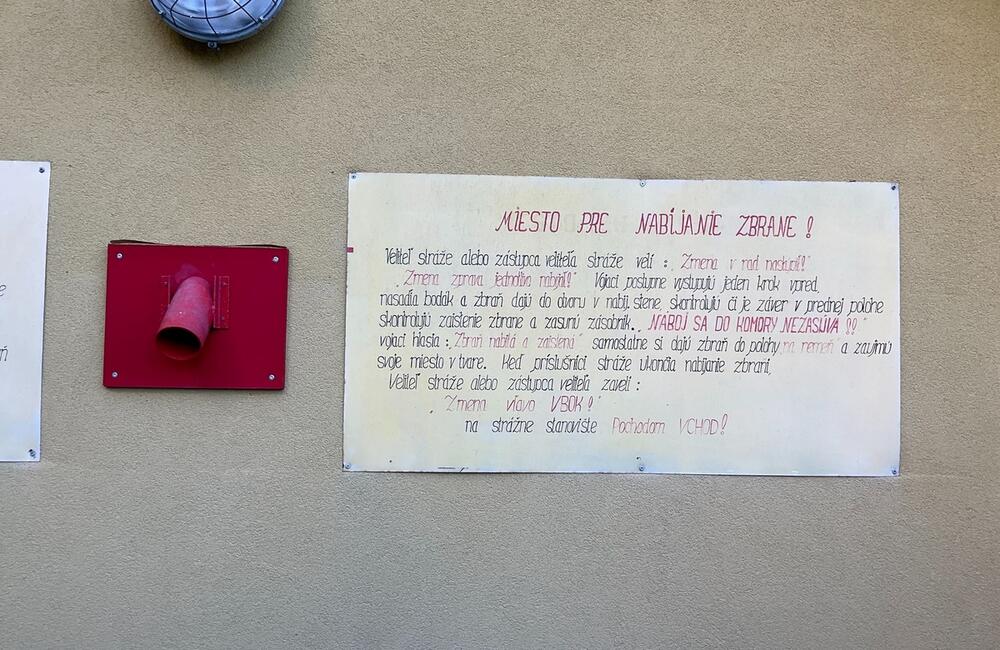 MIESTO PRE NABÍJANIE ZBRANE !
Veliteľ stráže alebo zástupca veliteľa stráže velí : „Zmena v rad nastúpiť!"
„Zmena zprava jednotlivo nabíjať!" Vojaci postupne vystupujú jeden krok vpred,
nasadia bodák a zbraň dajú do otvoru v nabíj. stene, skontrolujú či je záver v prednej polohe
skontrolujú zaistenie zbrane a zasunú zásobník. „NÁBOJ SA DO KOMORY NEZASÚVA !!"
vojaci hlásia : „Zbraň nabitá a zaistená" samostatne si dajú zbraň do polohy „na remeň" a zaujímú
svoje miesto v tvare. Keď príslušníci stráže ukončia nabíjanie zbraní,
Veliteľ stráže alebo zástupca veliteľa zavelí :
„Zmena vľavo VBOK !"
na strážne stanovište Pochodom VCHOD!